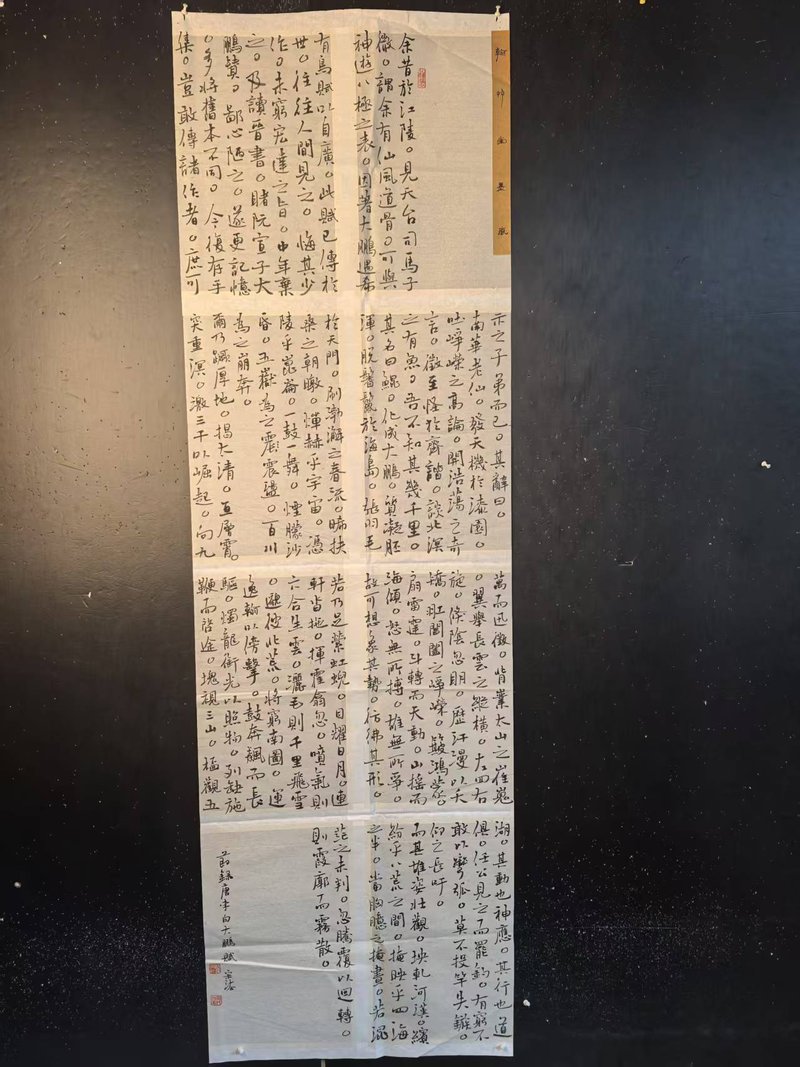 余昔於江陵。見天台司馬子
微。謂余有仙風道骨。可與
神遊八極之表。因著大鵬遇希
有鳥賦以自廣。此賦已傳於
世。往往人間見之。悔其少
作。未窮宏達之旨。中年棄
之。及讀晉書。睹阮宣子大
鵬贊。鄙心陋之。遂更記憶
。多將舊本不同。今復存手
集。豈敢傳諸作者。庶可
示之子弟而已。其辭曰。
南華老仙。發天機於漆園。
吐崢嶸之高論。開浩蕩之奇
言。徵至怪於齊諧。談北溟
之有魚。吾不知其幾千里。
其名曰鯤。化成大鵬。質凝胚
渾。脫鬐鬣於海島。張羽毛
於天門。刷渤澥之春流。晞扶
桑之朝暾。燀赫乎宇宙。憑
陵乎崑崙。一鼓一舞。煙朦沙
昏。五嶽為之震盪。百川
為之崩奔。
爾乃蹶厚地。揭太清。亘層霄。
突重溟。激三千以崛起。向九
萬而迅徵。背嶪大山之崔嵬
。翼舉長雲之縱橫。左回右
旋。倏陰忽明。歷汗漫以夭
矯。羾閶闔之崢嶸。簸鴻蒙。
扇雷霆。斗轉而天動。山搖而
海傾。怒無所搏。雄無所爭。
故可想象其勢。彷彿其形。
若乃足縈虹蜺。目耀日月。連
軒沓拖。揮霍翕忽。噴氣則
六合生雲。灑毛則千里飛雪
。邈彼北荒。將窮南圖。運
逸翰以傍擊。鼓奔飆而長
驅。燭龍銜光以照物。列缺施
鞭而啟途。塊視三山。杯觀五
湖。其動也神應。其行也道
俱。任公見之而罷釣。有窮不
敢以彎弧。莫不投竿失鏃。
仰之長吁。
而其雄姿壯觀。坱軋河漢。繽
紛乎八荒之間。掩映乎四海
之半。當胸臆之掩晝。若混
茫之未判。忽騰覆以迴轉。
則霞廓而霧散。
節錄唐李白大鵬賦